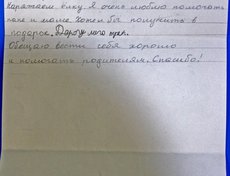 Наряжаем ёлку. Я очень люблю помогать
папе и маме. Хотел бы получить в
подарок. Дорогу
Обещаю вести себя хорошо
и помогать родителям. Спасибо!